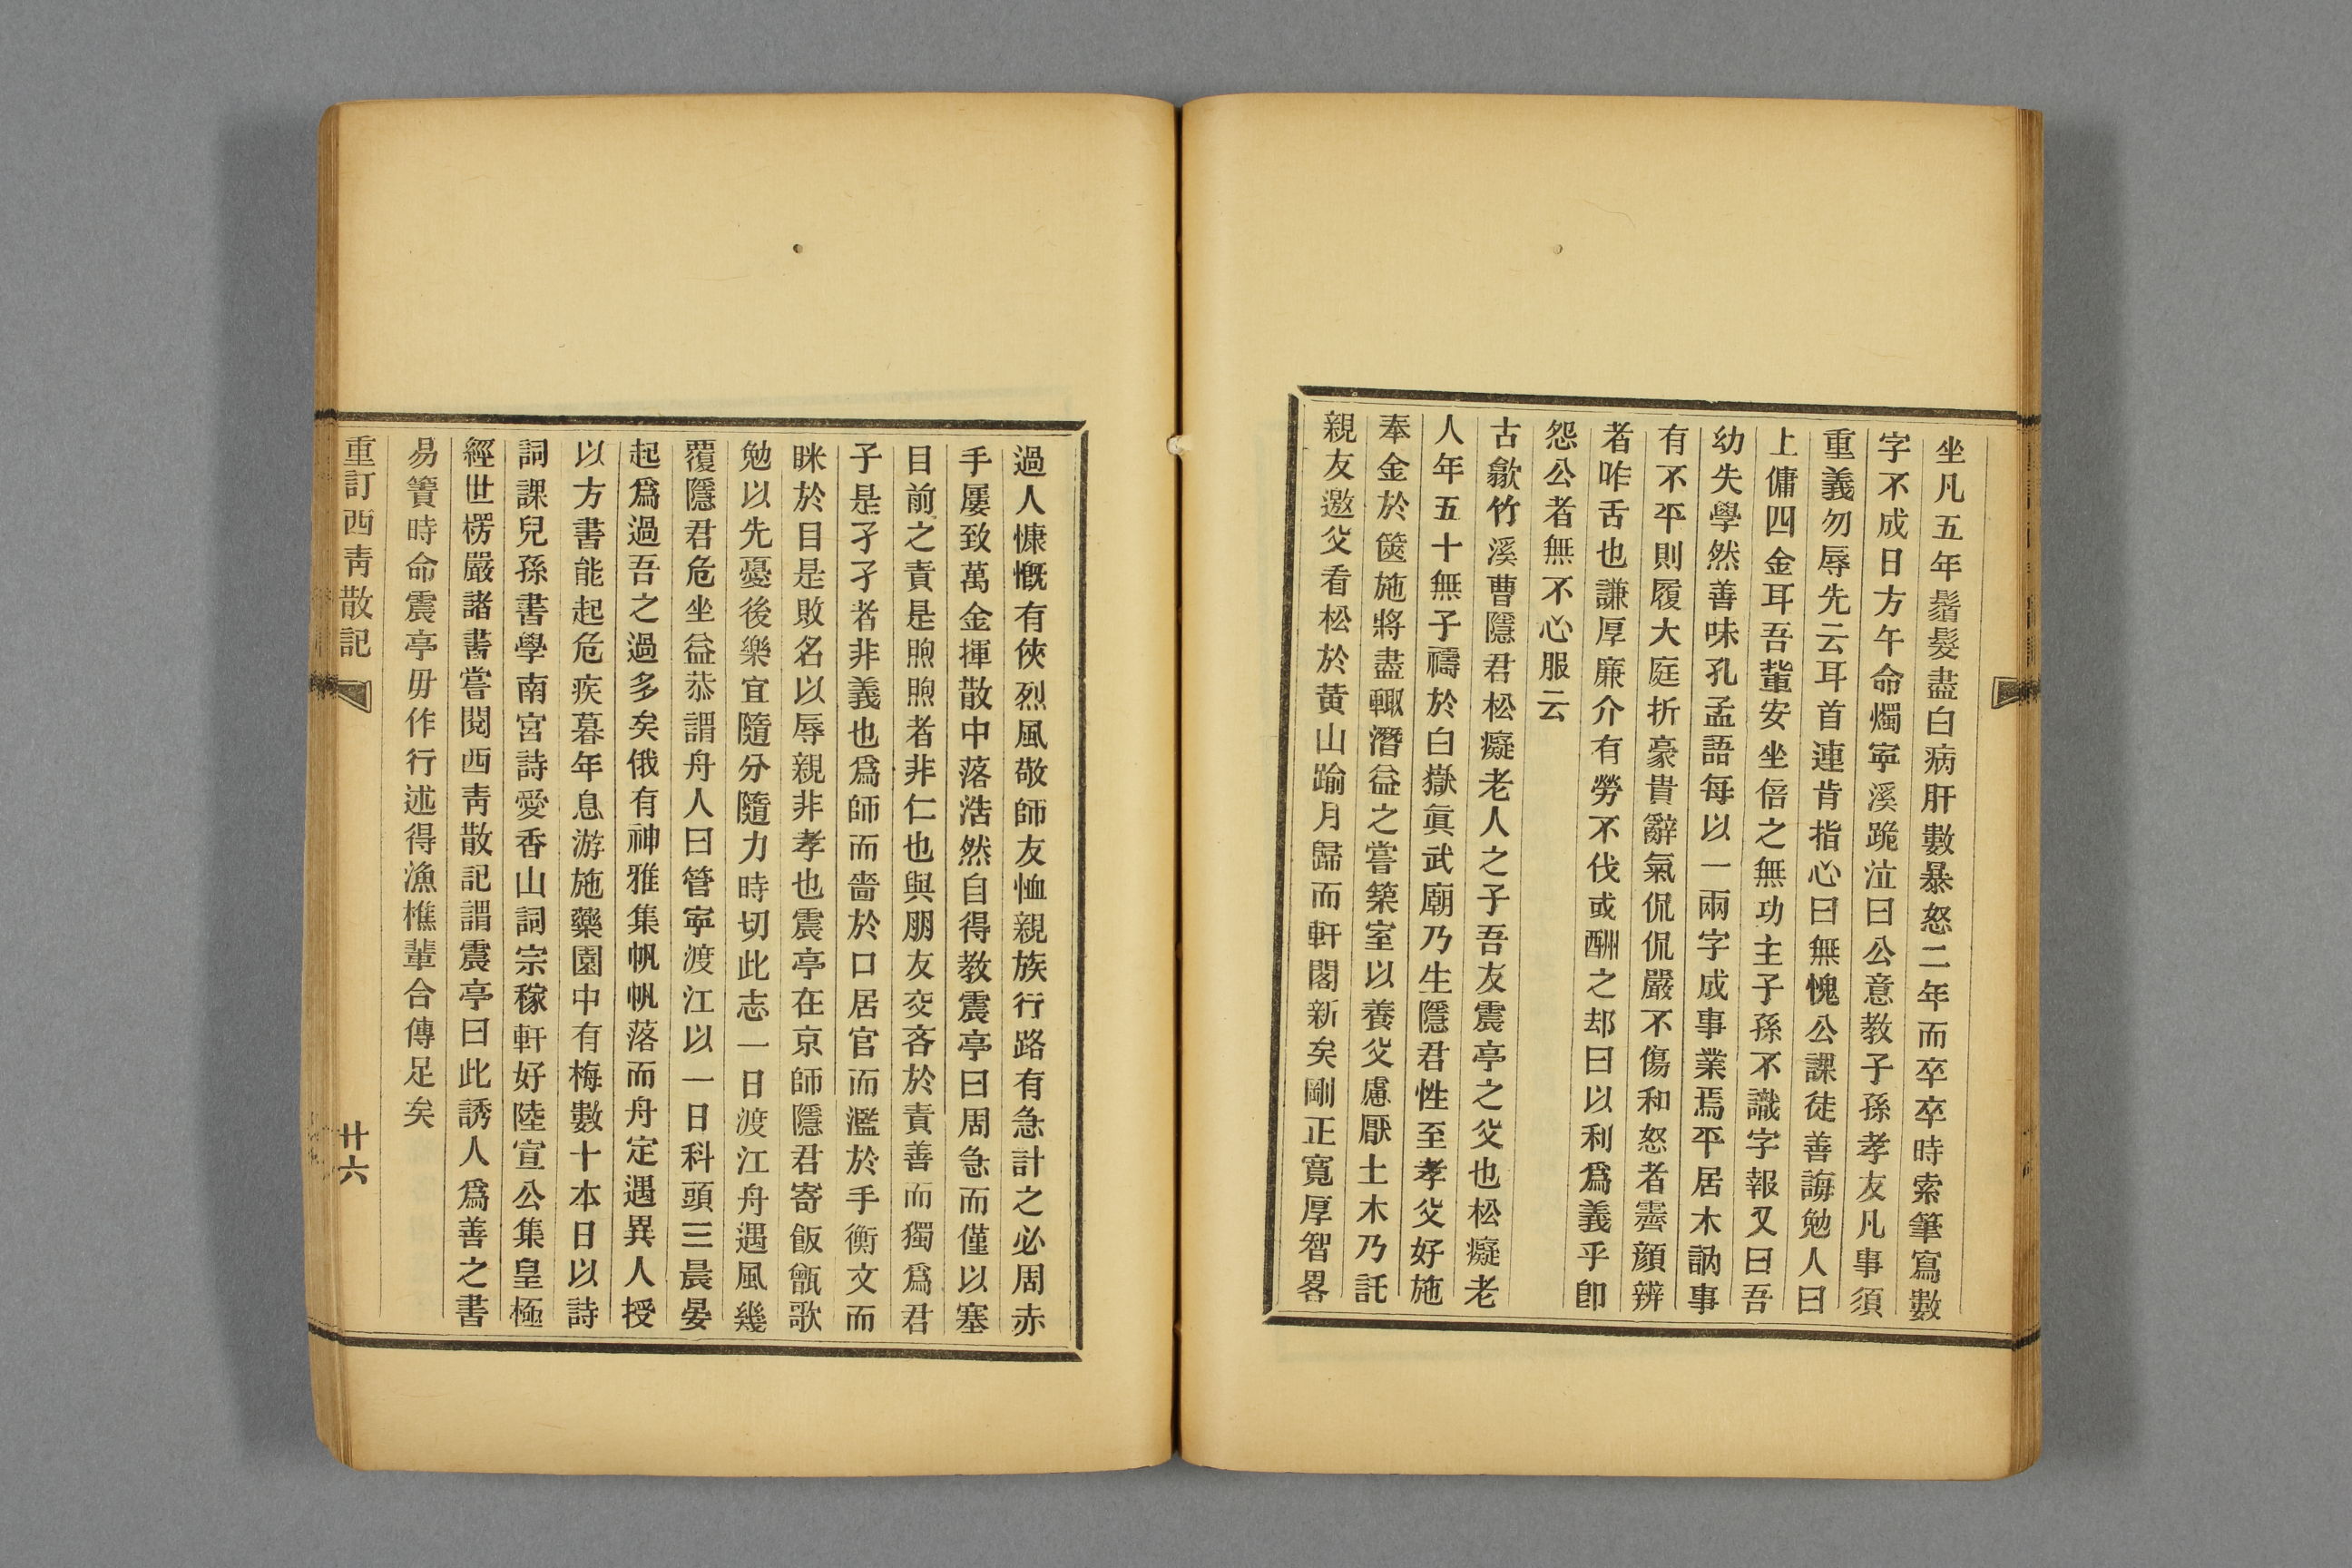 坐凡五年鬚髮盡白病肝數暴怒二年而卒卒時索筆寫數
字不成日方午命燭寧溪跪泣曰公意教子孫孝友凡事須
重義勿辱先云耳首連肯指心曰無愧公課徒善誨勉人曰
上傭四金耳吾輩安坐倍之無功主子孫不識字報又曰吾
幼失學然善味孔孟語每以一兩字成事業焉平居木訥事
有不平則履大庭折豪貴辭氣侃侃嚴不傷和怒者霽顏辨
者咋舌也謙厚廉介有勞不伐或酬之却曰以利爲義乎卽
怨公者無不心服云
古歙竹溪曹隱君松癡老人之子吾友震亭之父也松癡老
人年五十無子禱於白嶽眞武廟乃生隱君性至孝父好施
奉金於篋施將盡輙潛益之嘗築室以養父慮厭土木乃託
親友邀父看松於黃山踰月歸而軒閣新矣剛正寬厚智畧
過人慷慨有俠烈風敬師友恤親族行路有急計之必周赤
手屢致萬金揮散中落浩然自得教震亭曰周急而僅以塞
目前之責是煦煦者非仁也與朋友交吝於責善而獨爲君
子是孑孑者非義也爲師而嗇於口居官而濫於手衡文而
眯於目是敗名以辱親非孝也震亭在京師隱君寄飯甑歌
勉以先憂後樂宜隨分隨力時切此志一日渡江舟遇風幾
覆隱君危坐益恭謂舟人曰管寧渡江以一日科頭三晨晏
起爲過吾之過多矣俄有神雅集帆帆落而舟定遇異人授
以方書能起危疾暮年息游施藥園中有梅數十本日以詩
詞課兒孫書學南宮詩愛香山詞宗稼軒好陸宣公集皇極
經世楞嚴諸書嘗閱西靑散記謂震亭曰此誘人爲善之書
易簀時命震亭毋作行述得漁樵輩合傳足矣
重訂西靑散記
廿六